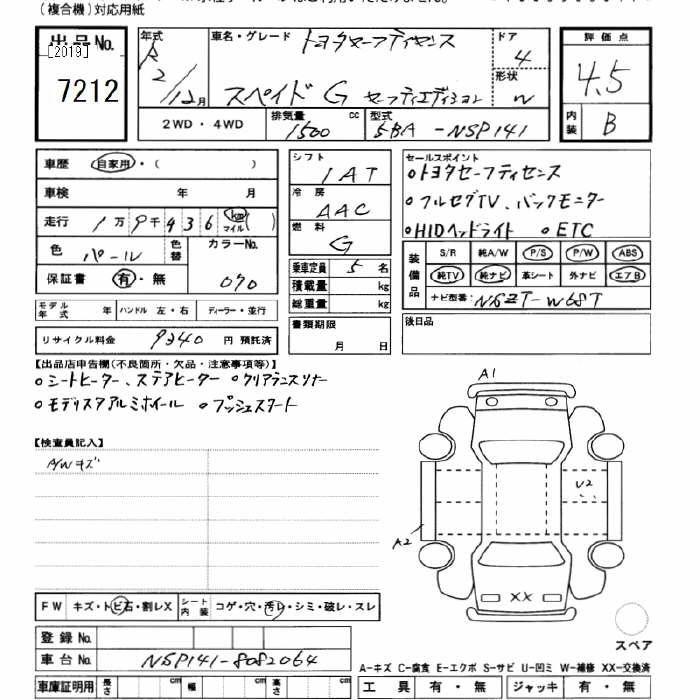 (複合機)対応用紙
出品No.
[2019]
7212
年式 R 2/12月
車名・グレード トヨタセーフティセンス
スペイド G セーフティエディション
ドア 4
形状 W
評価点 4.5
内装 B
2WD・4WD
排気量 1500 cc
型式 5BA-NSP141
車歴 自家用・( )
車検 年 月
走行 1万9千436 km マイル ( )
色 パール 色替 カラーNo. 070
保証書 有・無
モデル年式 年 ハンドル 左・右 ディーラー・並行
リサイクル料金 9340 円 預託済
シフト 1AT
冷房 AAC
燃料 G
乗車定員 5 名
積載量 kg
総重量 kg
書類期限 月 日
セールスポイント
○トヨタセーフティセンス
○フルセグTV、バックモニター
○HIDヘッドライト ○ETC
装備品 S/R 純A/W P/S P/W ABS
純TV 純ナビ 革シート 外ナビ エアB
ナビ型番: NSZT-W68T
後日品
【出品店申告欄(不良箇所・欠品・注意事項等)】
○シートヒーター、ステアヒーター ○クリアランスソナー
○モデリスタアルミホイール ○プッシュスタート
【検査員記入】
A/Wキズ
A1
U2
A2
XX
FW キズ・トビ石・割レX シート内装 コゲ・穴・汚レ・シミ・破レ・スレ
登録No.
車台No. NSP141-8082064
車庫証明用 長さ cm 幅 cm 高さ cm
スペア
A-キズ C-腐食 E-エクボ S-サビ U-凹ミ W-補修 XX-交換済
工具 有・無 ジャッキ 有・無